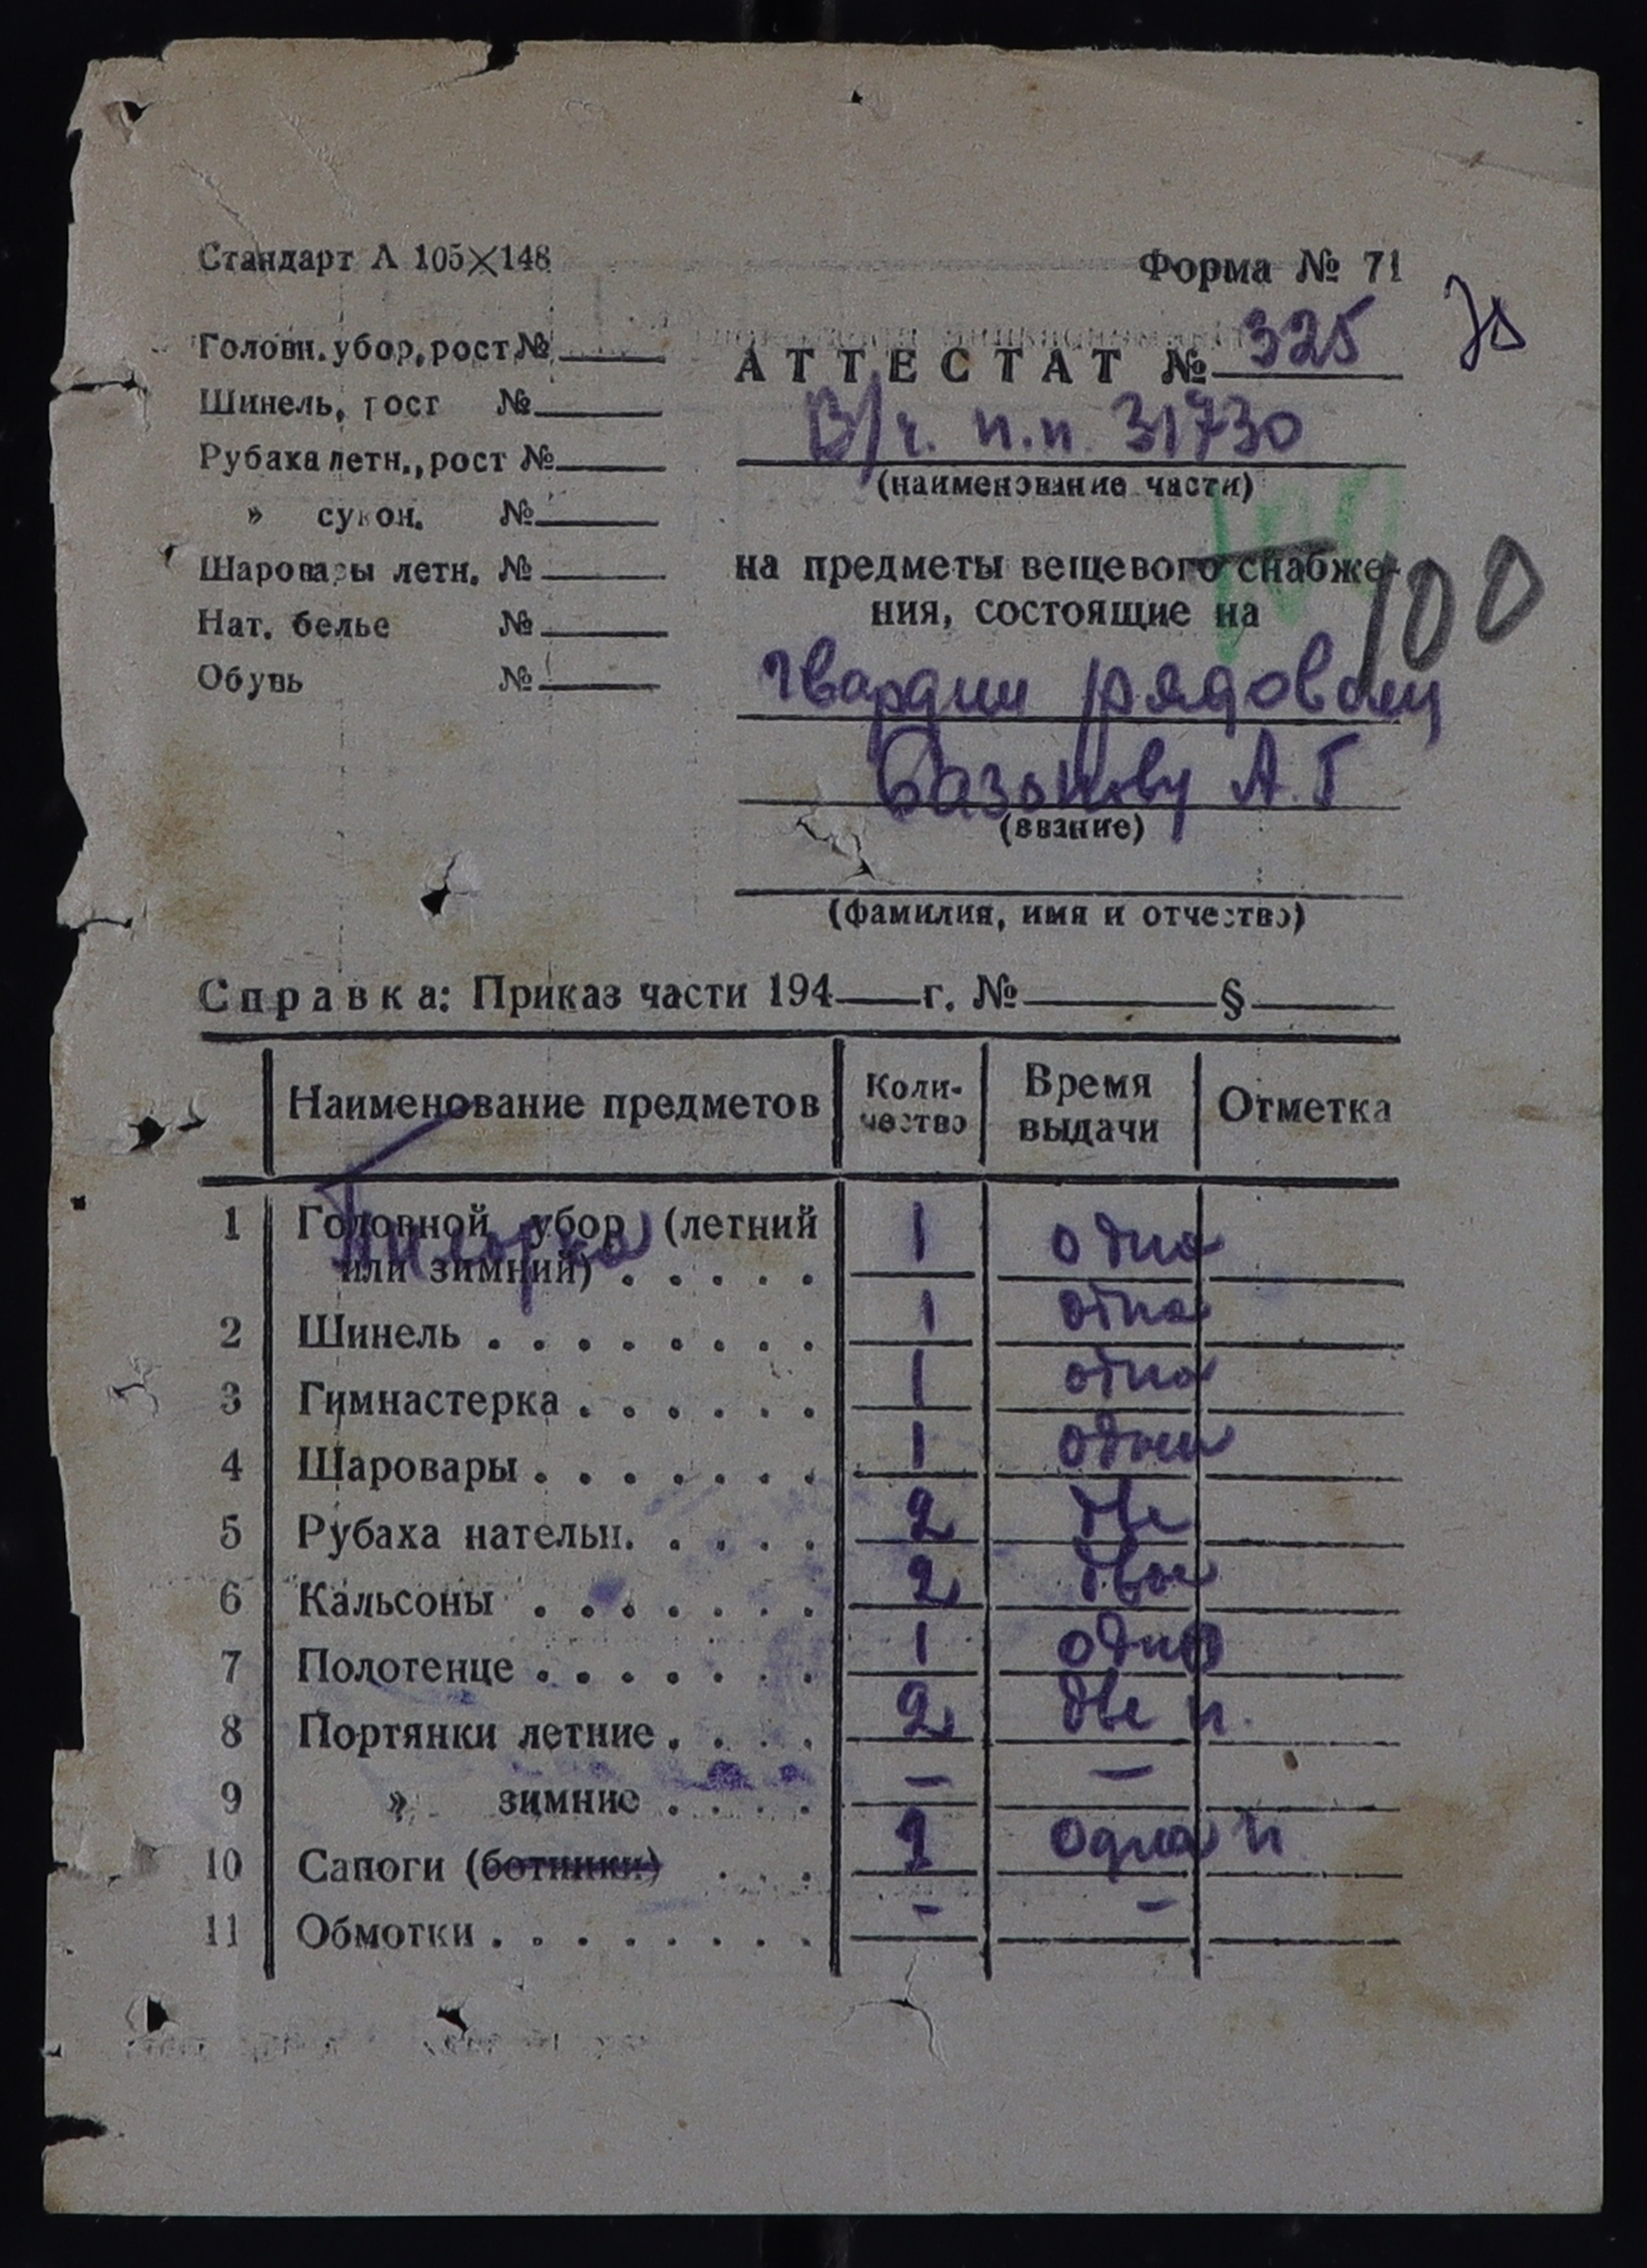 Стандарт А 105×148
Форма № 71
Головн. убор, рост №
Шинель, рост №
Рубаха летн., рост №
» сукон. №
Шаровары летн. №
Нат. белье №
Обувь №
АТТЕСТАТ № 325
В/ч. п.п. 31730
(наименование части)
на предметы вещевого снабже-
ния, состоящие на
100
100
гвардии рядовому
А. Г
(звание)
(фамилия, имя и отчество)
Справка: Приказ части 194 г. № §
Наименование предметов Коли-чество Время выдачи Отметка
Пилотка
1 Головной убор (летний
или зимний) . . . . . 1 одна
2 Шинель . . . . . . . . 1 одна
3 Гимнастерка . . . . . . 1 одна
4 Шаровары . . . . . . . 1 одни
5 Рубаха нательн. . . . . 2 две
6 Кальсоны . . . . . . . 2 двое
7 Полотенце . . . . . . . 1 одно
8 Портянки летние . . . . 2 две п.
9 » зимние . . . . — —
10 Сапоги (ботинки) . . . 1 одна п
11 Обмотки . . . . . . . . - -